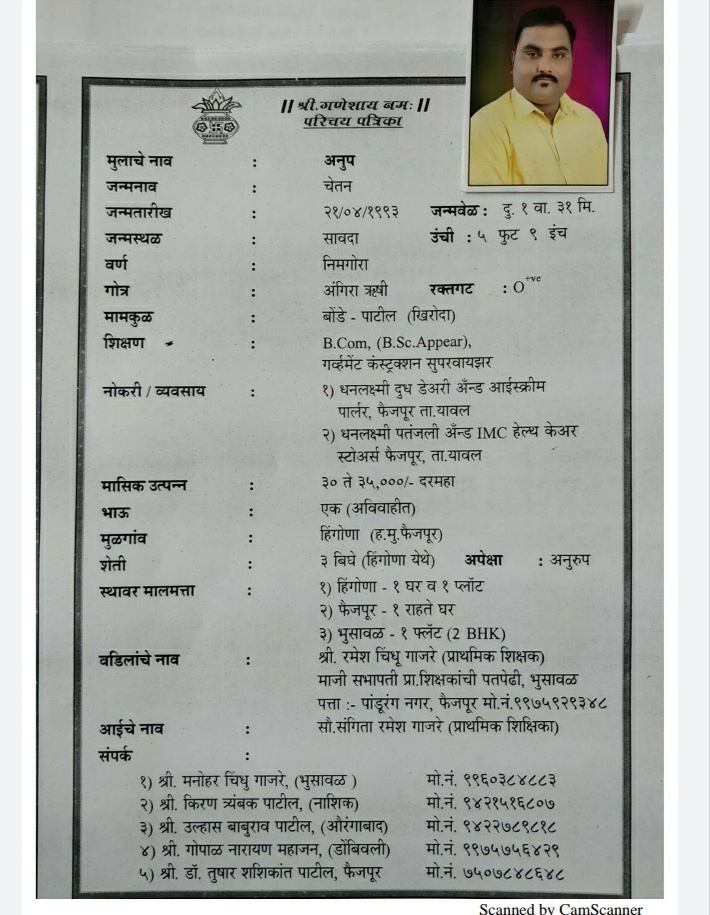 || श्री.गणेशाय नमः ||
परिचय पत्रिका
मुलाचे नाव : अनुप
जन्मनाव : चेतन
जन्मतारीख : २१/०४/१९९३ जन्मवेळ : दु. १ वा. ३१ मि.
जन्मस्थळ : सावदा उंची : ५ फुट ९ इंच
वर्ण : निमगोरा
गोत्र : अंगिरा ऋषी रक्तगट : O+ve
मामकुळ : बोंडे - पाटील (खिरोदा)
शिक्षण : B.Com, (B.Sc.Appear),
गर्व्हमेंट कंस्ट्रक्शन सुपरवायझर
नोकरी / व्यवसाय : १) धनलक्ष्मी दुध डेअरी अँन्ड आईस्क्रीम
पार्लर, फैजपूर ता.यावल
२) धनलक्ष्मी पतंजली अँन्ड IMC हेल्थ केअर
स्टोअर्स फैजपूर, ता.यावल
मासिक उत्पन्न : ३० ते ३५,०००/- दरमहा
भाऊ : एक (अविवाहीत)
मुळगांव : हिंगोणा (ह.मु.फैजपूर)
शेती : ३ बिघे (हिंगोणा येथे) अपेक्षा : अनुरुप
स्थावर मालमत्ता : १) हिंगोणा - १ घर व १ प्लॉट
२) फैजपूर - १ राहते घर
३) भुसावळ - १ फ्लॅट (2 BHK)
वडिलांचे नाव : श्री. रमेश चिंधू गाजरे (प्राथमिक शिक्षक)
माजी सभापती प्रा.शिक्षकांची पतपेढी, भुसावळ
पत्ता :- पांडूरंग नगर, फैजपूर मो.नं.९९७५९२९३४८
आईचे नाव : सौ.संगिता रमेश गाजरे (प्राथमिक शिक्षिका)
संपर्क :
१) श्री. मनोहर चिंधु गाजरे, (भुसावळ ) मो.नं. ९९६०३८४८८३
२) श्री. किरण त्र्यंबक पाटील, (नाशिक) मो.नं. ९४२१५१६८०७
३) श्री. उल्हास बाबुराव पाटील, (औरंगाबाद) मो.नं. ९४२२७८९८१८
४) श्री. गोपाळ नारायण महाजन, (डोंबिवली) मो.नं. ९९७५७५६४२९
५) श्री. डॉ. तुषार शशिकांत पाटील, फैजपूर मो.नं. ७५०७८४८६४८
Scanned by CamScanner